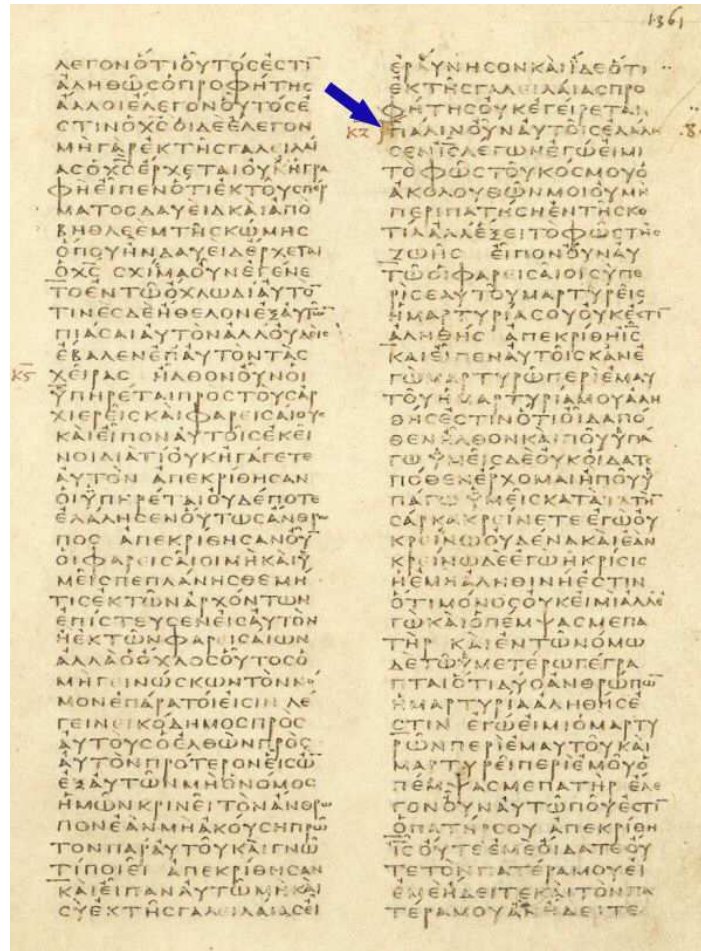 1361
ΛΕΓΟΝΟΤΙΟΥΤΟϹΕϹΤΙ̅
ΑΛΗΘΩϹΟΠΡΟΦΗΤΗϹ
ΑΛΛΟΙΕΛΕΓΟΝΟΥΤΟϹΕ
ϹΤΙΝΟΧ̅Ϲ̅ΟΙΔΕΕΛΕΓΟΝ
ΜΗΓΑΡΕΚΤΗϹΓΑΛΕΙΛΑΙ
ΑϹΟΧ̅Ϲ̅ΕΡΧΕΤΑΙΟΥΧΗΓΡΑ
ΦΗΕΙΠΕΝΟΤΙΕΚΤΟΥϹΠΕΡ
ΜΑΤΟϹΔΑΥΕΙΔΚΑΙΑΠΟ
ΒΗΘΛΕΕΜΤΗϹΚΩΜΗϹ
ΟΠΟΥΗΝΔΑΥΕΙΔΕΡΧΕΤΑΙ
ΟΧ̅Ϲ̅ ϹΧΙϹΜΑΟΥΝΕΓΕΝΕ
ΤΟΕΝΤΩΟΧΛΩΔΙΑΥΤΟ
ΤΙΝΕϹΔΕΗΘΕΛΟΝΕΞΑΥΤΩ̅
ΠΙΑϹΑΙΑΥΤΟΝΑΛΛΟΥΔΕΙϹ
ΕΒΑΛΕΝΕΠΑΥΤΟΝΤΑϹ
Κ̅Ϛ̅ ΧΕΙΡΑϹ ΗΛΘΟΝΟΥΝΟΙ
ΥΠΗΡΕΤΑΙΠΡΟϹΤΟΥϹΑΡ
ΧΙΕΡΕΙϹΚΑΙΦΑΡΕΙϹΑΙΟΥϹ
ΚΑΙΕΙΠΟΝΑΥΤΟΙϹΕΚΕΙ
ΝΟΙΔΙΑΤΙΟΥΚΗΓΑΓΕΤΕ
ΑΥΤΟΝ ΑΠΕΚΡΙΘΗϹΑΝ
ΟΙΥΠΗΡΕΤΑΙΟΥΔΕΠΟΤΕ
ΕΛΑΛΗϹΕΝΟΥΤΩϹΑΝΘΡΩ
ΠΟϹ ΑΠΕΚΡΙΘΗϹΑΝΟΥ
ΟΙΦΑΡΕΙϹΑΙΟΙΜΗΚΑΙΥ
ΜΕΙϹΠΕΠΛΑΝΗϹΘΕΜΗ
ΤΙϹΕΚΤΩΝΑΡΧΟΝΤΩΝ
ΕΠΙϹΤΕΥϹΕΝΕΙϹΑΥΤΟΝ
ΗΕΚΤΩΝΦΑΡΕΙϹΑΙΩΝ
ΑΛΛΑΟΟΧΛΟϹΟΥΤΟϹΟ
ΜΗΓΕΙΝΩϹΚΩΝΤΟΝΝΟ
ΜΟΝΕΠΑΡΑΤΟΙΕΙϹΙΝ ΛΕ
ΓΕΙΝΕΙΚΟΔΗΜΟϹΠΡΟϹ
ΑΥΤΟΥϹΟΕΛΘΩΝΠΡΟϹ
ΑΥΤΟΝΠΡΟΤΕΡΟΝΕΙϹΩ̅
ΕΞΑΥΤΩΝΜΗΟΝΟΜΟϹ
ΗΜΩΝΚΡΙΝΕΙΤΟΝΑΝΘΡΩ
ΠΟΝΕΑΝΜΗΑΚΟΥϹΗΠΡΩ
ΤΟΝΠΑΡΑΥΤΟΥΚΑΙΓΝΩ
ΤΙΠΟΙΕΙ ΑΠΕΚΡΙΘΗϹΑΝ
ΚΑΙΕΙΠΑΝΑΥΤΩΜΗΚΑΙ
ϹΥΕΚΤΗϹΓΑΛΕΙΛΑΙΑϹΕΙ
ΕΡΑΥΝΗϹΟΝΚΑΙΙΔΕΟΤΙ
ΕΚΤΗϹΓΑΛΕΙΛΑΙΑϹΠΡΟ
ΦΗΤΗϹΟΥΚΕΓΕΙΡΕΤΑΙ
Κ̅Ζ̅ ΠΑΛΙΝΟΥΝΑΥΤΟΙϹΕΛΑΛΗ .8.
ϹΕΝΙ̅Ϲ̅ΛΕΓΩΝΕΓΩΕΙΜΙ
ΤΟΦΩϹΤΟΥΚΟϹΜΟΥΟ
ΑΚΟΛΟΥΘΩΝΜΟΙΟΥΜΗ
ΠΕΡΙΠΑΤΗϹΗΕΝΤΗϹΚΟ
ΤΙΑΑΛΛΕΞΕΙΤΟΦΩϹΤΗϹ
ΖΩΗϹ ΕΙΠΟΝΟΥΝΑΥ
ΤΩΟΙΦΑΡΕΙϹΑΙΟΙϹΥΠΕ
ΡΙϹΕΑΥΤΟΥΜΑΡΤΥΡΕΙϹ
ΗΜΑΡΤΥΡΙΑϹΟΥΟΥΚΕϹΤΙ̅
ΑΛΗΘΗϹ ΑΠΕΚΡΙΘΗΙ̅Ϲ̅
ΚΑΙΕΙΠΕΝΑΥΤΟΙϹΚΑΝΕ
ΓΩΜΑΡΤΥΡΩΠΕΡΙΕΜΑΥ
ΤΟΥΗΜΑΡΤΥΡΙΑΜΟΥΑΛΗ
ΘΗϹΕϹΤΙΝΟΤΙΟΙΔΑΠΟ
ΘΕΝΗΛΘΟΝΚΑΙΠΟΥΥΠΑ
ΓΩ ΥΜΕΙϹΔΕΟΥΚΟΙΔΑΤΕ
ΠΟΘΕΝΕΡΧΟΜΑΙΗΠΟΥΥ
ΠΑΓΩ ΥΜΕΙϹΚΑΤΑΤΗΝ
ϹΑΡΚΑΚΡΕΙΝΕΤΕΕΓΩΟΥ
ΚΡΕΙΝΩΟΥΔΕΝΑΚΑΙΕΑΝ
ΚΡΕΙΝΩΔΕΕΓΩΗΚΡΙϹΙϹ
ΗΕΜΗΑΛΗΘΙΝΗΕϹΤΙΝ
ΟΤΙΜΟΝΟϹΟΥΚΕΙΜΙΑΛΛΕ
ΓΩΚΑΙΟΠΕΜΨΑϹΜΕΠΑ
ΤΗΡ ΚΑΙΕΝΤΩΝΟΜΩ
ΔΕΤΩΥΜΕΤΕΡΩΓΕΓΡΑ
ΠΤΑΙΟΤΙΔΥΟΑΝΘΡΩΠΩ̅
ΗΜΑΡΤΥΡΙΑΑΛΗΘΗϹΕ
ϹΤΙΝ ΕΓΩΕΙΜΙΟΜΑΡΤΥ
ΡΩΝΠΕΡΙΕΜΑΥΤΟΥΚΑΙ
ΜΑΡΤΥΡΕΙΠΕΡΙΕΜΟΥΟ
ΠΕΜΨΑϹΜΕΠΑΤΗΡ ΕΛΕ
ΓΟΝΟΥΝΑΥΤΩΠΟΥΕϹΤΙ̅
ΟΠΑΤΗΡϹΟΥ ΑΠΕΚΡΙΘΗ
Ι̅Ϲ̅ΟΥΤΕΕΜΕΟΙΔΑΤΕΟΥ
ΤΕΤΟΝΠΑΤΕΡΑΜΟΥΕΙ
ΕΜΕΗΔΕΙΤΕΚΑΙΤΟΝΠΑ
ΤΕΡΑΜΟΥΑΝΗΔΕΙΤΕ